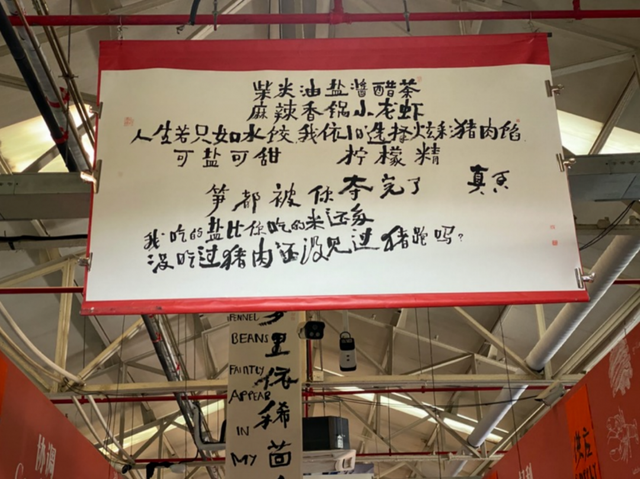 柴米油盐酱醋茶
麻辣香锅小龙虾
人生若只如水饺,我依旧选择炫彩猪肉馅
可盐可甜 柠檬精
笋都被你夺完了 真香
我吃的盐比你吃的米还多
没吃过猪肉还没见过猪跑吗?
FENNEL
BEANS
FAINTLY
APPEAR
IN
MY
梦里依稀茴
协调
供应